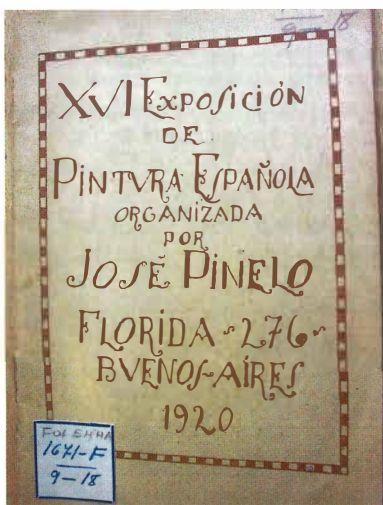 9 - 18
XVI EXPOSICIÓN
DE
PINTVRA ESPAÑOLA
ORGANIZADA
POR
JOSÉ PINELO
FLORIDA - 276 -
BVENOS-AIRES
1920
1671-F
9-18